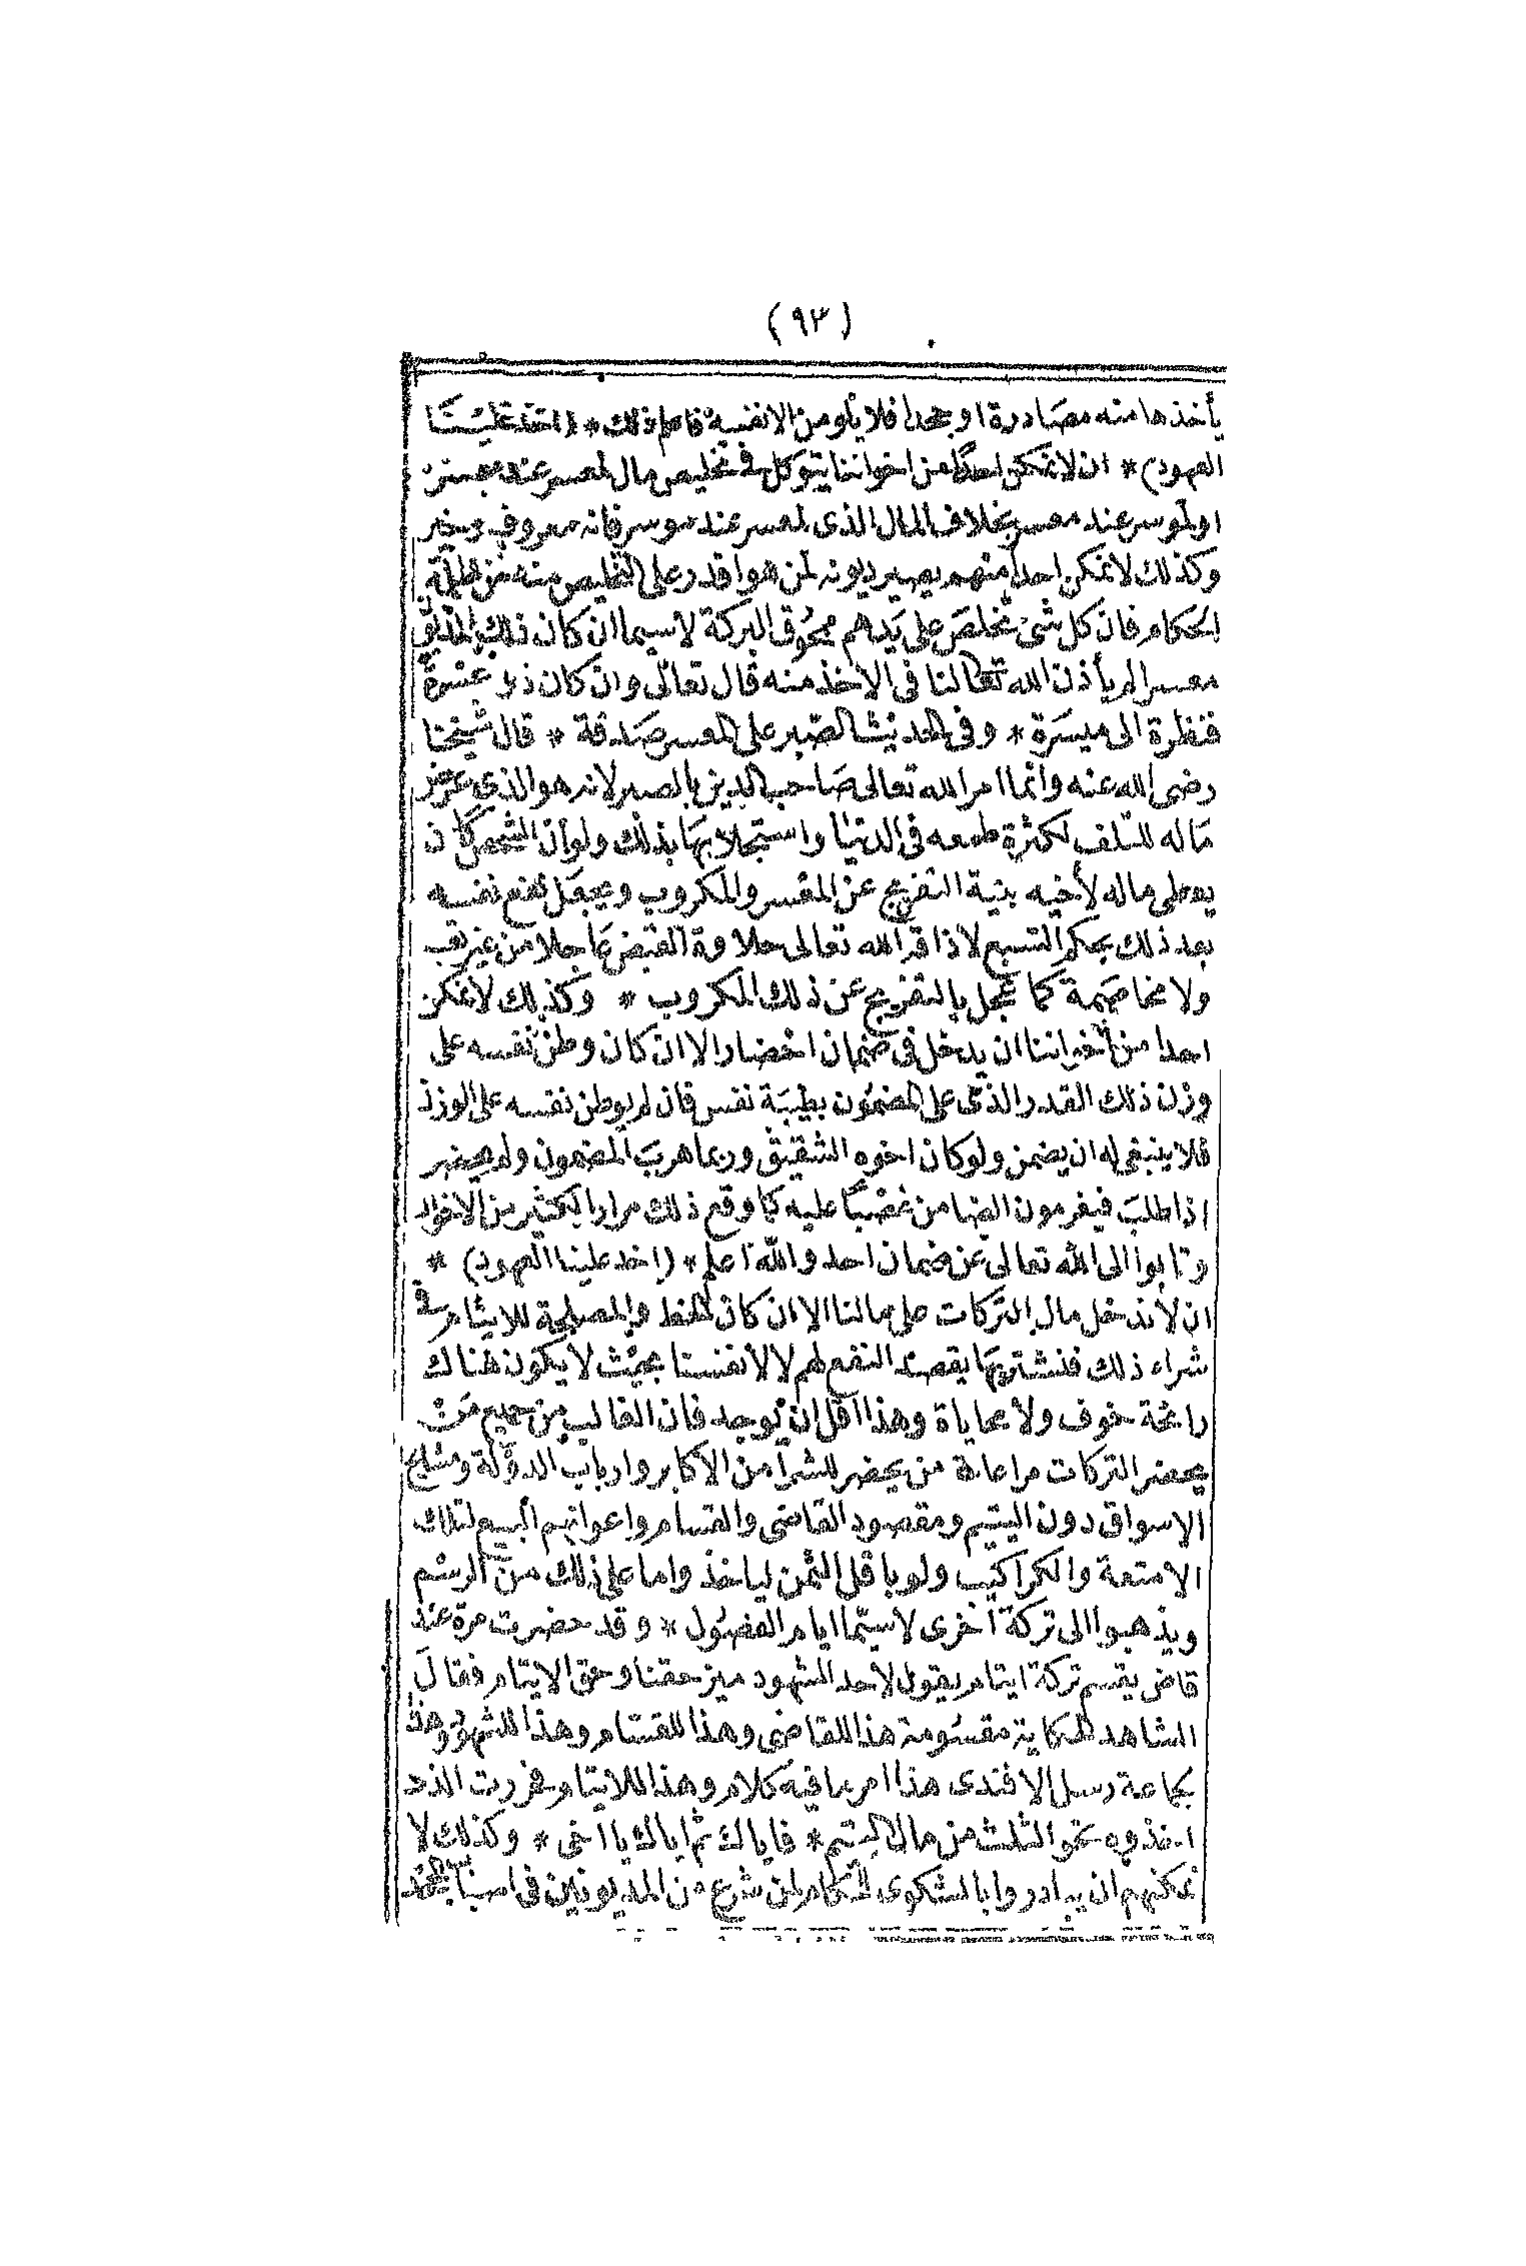 (٩٣)
يأخذها منه مصادرة او جحدا فلا يلومن الا نفسه فاعلم ذلك * (اخذ علينا
العهود) * ان لا نمكن احدا من اخواننا يتوكل فى تخليص مال لمعسر عند معسر
او لموسر عند معسر بخلاف المال الذى لمعسر عند موسر فانه معروف وخير
وكذلك لا نمكن احدا منهم يصير ديونه لمن هو اقدر على التخليص منه من ظلمة
الحكام فان كل شئ تخلص على يدهم ممحوق البركة لاسيما ان كان ذلك المديون
معسرا لم يأذن الله تعالى لنا فى الاخذ منه قال تعالى وان كان ذو عسرة
فنظرة الى ميسرة * وفى الحديث الصبر على المعسر صدقة * قال شيخنا
رضى الله عنه وانما امر الله تعالى صاحب الدين بالصبر لانه هو الذى عرض
ماله للتلف لكثرة طمعه فى الدنيا واستجلابها بذلك ولو ان الشخص كان
يعطى ماله لأخيه بنية التفريج عن المعسر والمكروب ويجعل نفع نفسه
بعد ذلك بحكم التبع لاذاقه الله تعالى حلاوة القبض عاجلا من غير تعب
ولا مخاصمة كما عجل بالتفريج عن ذلك المكروب * وكذلك لا نمكن
احدا من أخواننا ان يدخل فى ضمان احضار الا ان كان وطن نفسه على
وزن ذلك القدر الذى على المضمون بطيبة نفس فان لم يوطن نفسه على الوزن
فلا ينبغى له ان يضمن ولو كان اخوه الشقيق وربما هرب المضمون ولم يحضر
اذا طلب فيغرمون الضامن غصبا عليه كما وقع ذلك مرارا لكثير من الاخوان
وتابوا الى الله تعالى عن ضمان احد والله اعلم * (اخذ علينا العهود) *
ان لا ندخل مال التركات على مالنا الا ان كان الحظ والمصلحة للايتام فى
شراء ذلك فنشتريها بقصد النفع لهم لا لأنفسنا بحيث لا يكون هناك
رائحة خوف ولا محاباة وهذا اقل ان يوجد فان الغالب من جميع من
يحضر التركات مراعاة من يحضر للشرا من الاكابر وارباب الدولة ومشايخ
الاسواق دون اليتيم ومقصود القاضى والقسام واعوانهم البيع لتلك
الامتعة والكراكيب ولو باقل الثمن لياخذوا ما على ذلك من الرسم
ويذهبوا الى تركة أخرى لاسيما ايام الفصول * وقد حضرت مرة عند
قاض يقسم تركة ايتام يقول لأحد الشهود ميز حقنا وحق الايتام فقال
الشاهد الحكاية مقسومة هذا للقاضى وهذا للقسام وهذا للشهود وهذا
لجماعة رسل الافندى هذا امر ما فيه كلام وهذا للايتام فحررت الذى
اخذوه نحو الثلث من مال اليتيم * فاياك ثم اياك يا اخى * وكذلك لا
نمكنهم ان يبادروا بالشكوى للحكام لمن شرع من المديونين فى اسباب